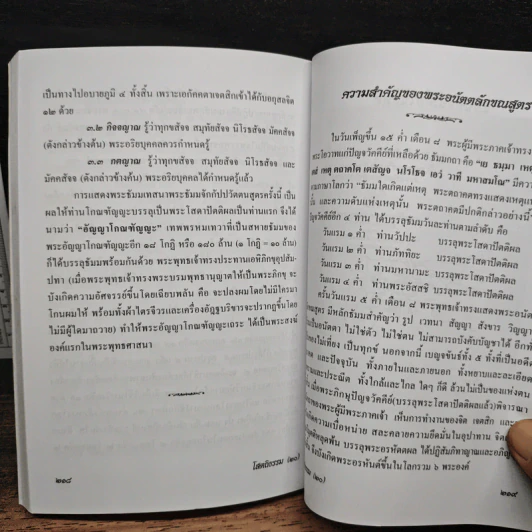 เป็นทางไปอบายภูมิ ๔ ทั้งสิ้น เพราะเอกัคคตาเจตสิกเข้าได้กับอกุศลจิต
๑๒ ด้วย
๓.๒ กิจจญาณ รู้ว่าทุกขสัจจ สมุทัยสัจจ นิโรธสัจจ มัคคสัจจ
(ดังกล่าวข้างต้น) พระอริยบุคคลควรกำหนดรู้
๓.๓ กตญาณ รู้ว่าทุกขสัจจ สมุทัยสัจจ นิโรธสัจจ และ
มัคคสัจจ (ดังกล่าวข้างต้น) พระอริยบุคคลได้กำหนดรู้แล้ว
การแสดงพระธัมมเทสนาพระธัมมจักกัปปวัตตนสูตรครั้งนี้ เป็น
ผลให้ท่านโกณฑัญญะบรรลุเป็นพระโสดาปัตติผลเป็นท่านแรก จึงได้
นามว่า “อัญญาโกณฑัญญะ” เทพพรหมเทวาที่เป็นสหายธัมมของ
พระอัญญาโกณฑัญญะอีก ๑๘ โกฏิ หรือ ๑๘๐ ล้าน (๑ โกฏิ = ๑๐ ล้าน)
ก็ได้บรรลุธัมมพร้อมกันด้วย พระพุทธเจ้าทรงประทานเอหิภิกขุอุปสัม-
ปทา (เมื่อพระพุทธเจ้าทรงพระบรมพุทธานุญาตให้เป็นพระภิกขุ จะ
บังเกิดความอัศจรรย์ขึ้นโดยเฉียบพลัน คือ จะปลงผมโดยไม่มีใครมา
โกนผมให้ พร้อมทั้งผ้าไตรจีวรและเครื่องอัฏฐบริขารจะปรากฏขึ้นโดย
ไม่มีผู้ใดมาถวาย) ทำให้พระอัญญาโกณฑัญญะเถระ ได้เป็นพระสงฆ์
องค์แรกในพระพุทธศาสนา
๒๑๘
โสตถิธรรม (๒๐)
ความสำคัญของพระอนัตตลักขณสูตร
ในวันเพ็ญขึ้น ๑๕ ค่ำ เดือน ๘ พระผู้มีพระภาคเจ้าทรง
พระโอวาทแก่ปัญจวัคคีย์ที่เหลือด้วย ธัมมกถา คือ “เย ธมฺมา เหตุ
เหตุ ตถาคโต เตสญฺจ นิโรโธ จ เอวํ วาที มหาสมโณ” มีความ
ภาษาไทยว่า “ธัมมใดเกิดแต่เหตุ พระตถาคตทรงแสดงเหตุ
และความดับแห่งเหตุนั้น พระตถาคตมีปกติกล่าวอย่างนี้
ปัญจวัคคีย์อีก ๔ ท่าน ได้บรรลุธัมมวันละท่านตามลำดับ คือ
วันแรม ๑ ค่ำ ท่านวัปปะ บรรลุพระโสดาปัตติผล
วันแรม ๒ ค่ำ ท่านภัททิยะ บรรลุพระโสดาปัตติผล
วันแรม ๓ ค่ำ ท่านมหานามะ บรรลุพระโสดาปัตติผล
วันแรม ๔ ค่ำ ท่านพระอัสสชิ บรรลุพระโสดาปัตติผล
ครั้นวันแรม ๕ ค่ำ เดือน ๘ พระพุทธเจ้าทรงแสดงพระอนัตต
สูตร มีหลักธัมมสำคัญว่า รูป เวทนา สัญญา สังขาร วิญญาณ
เป็นอนัตตา ไม่ใช่ตัว ไม่ใช่ตน ไม่สามารถบังคับบัญชาได้ อีกทั้ง
ไม่เที่ยง เป็นทุกข์ นอกจากนี้ เบญจขันธ์ทั้ง ๕ ทั้งที่เป็นอดีต
และปัจจุบัน ทั้งภายในและภายนอก ทั้งหยาบและละเอียด
และประณีต ทั้งไกลและใกล้ ใดๆ ก็ดี ล้วนไม่เป็นของแห่งตน
เมื่อพระภิกษุปัญจวัคคีย์ (บรรลุพระโสดาปัตติผลแล้ว) พิจารณา
ของพระผู้มีพระภาคเจ้า เห็นการทำงานของจิต เจตสิก และ
เกิดความเบื่อหน่าย สละคลายความยึดมั่นในอุปาทาน จิต
หลุดพ้น บรรลุพระอรหัตตผล ได้ปฏิสัมภิทาญาณและอภิญ
จึงบังเกิดพระอรหันต์ขึ้นในโลกรวม ๖ พระองค์
(๒๐)
๒๑๙